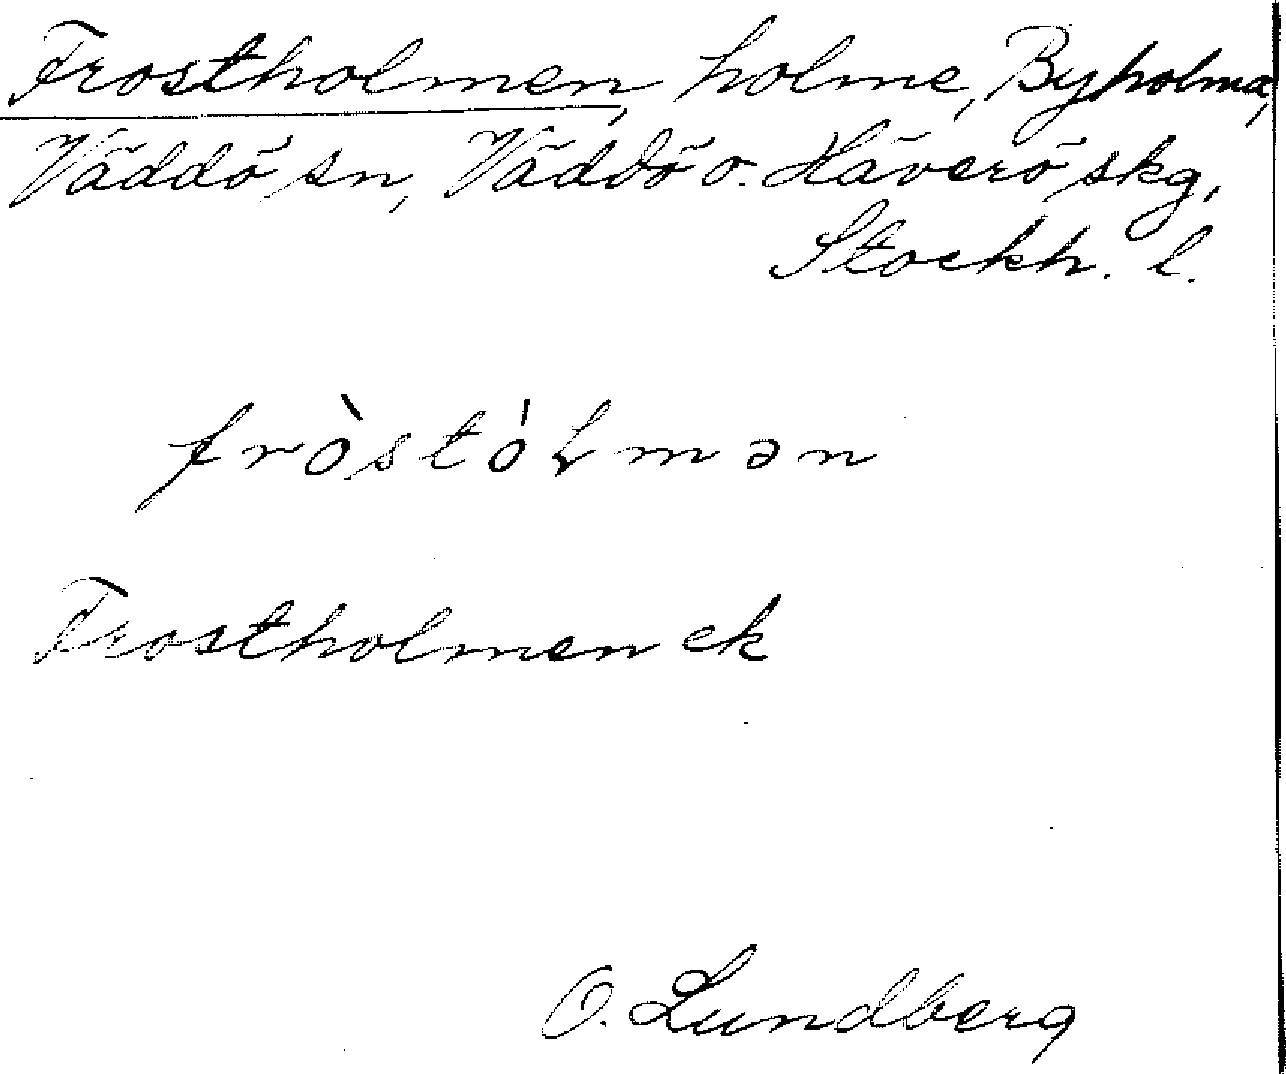 Frostholmen, holme, Byholma,
Väddö sn, Väddö o. Häverö skg,
Stockh. l.
fròstóɫmən
Frostholmen ek
O. Lundberg